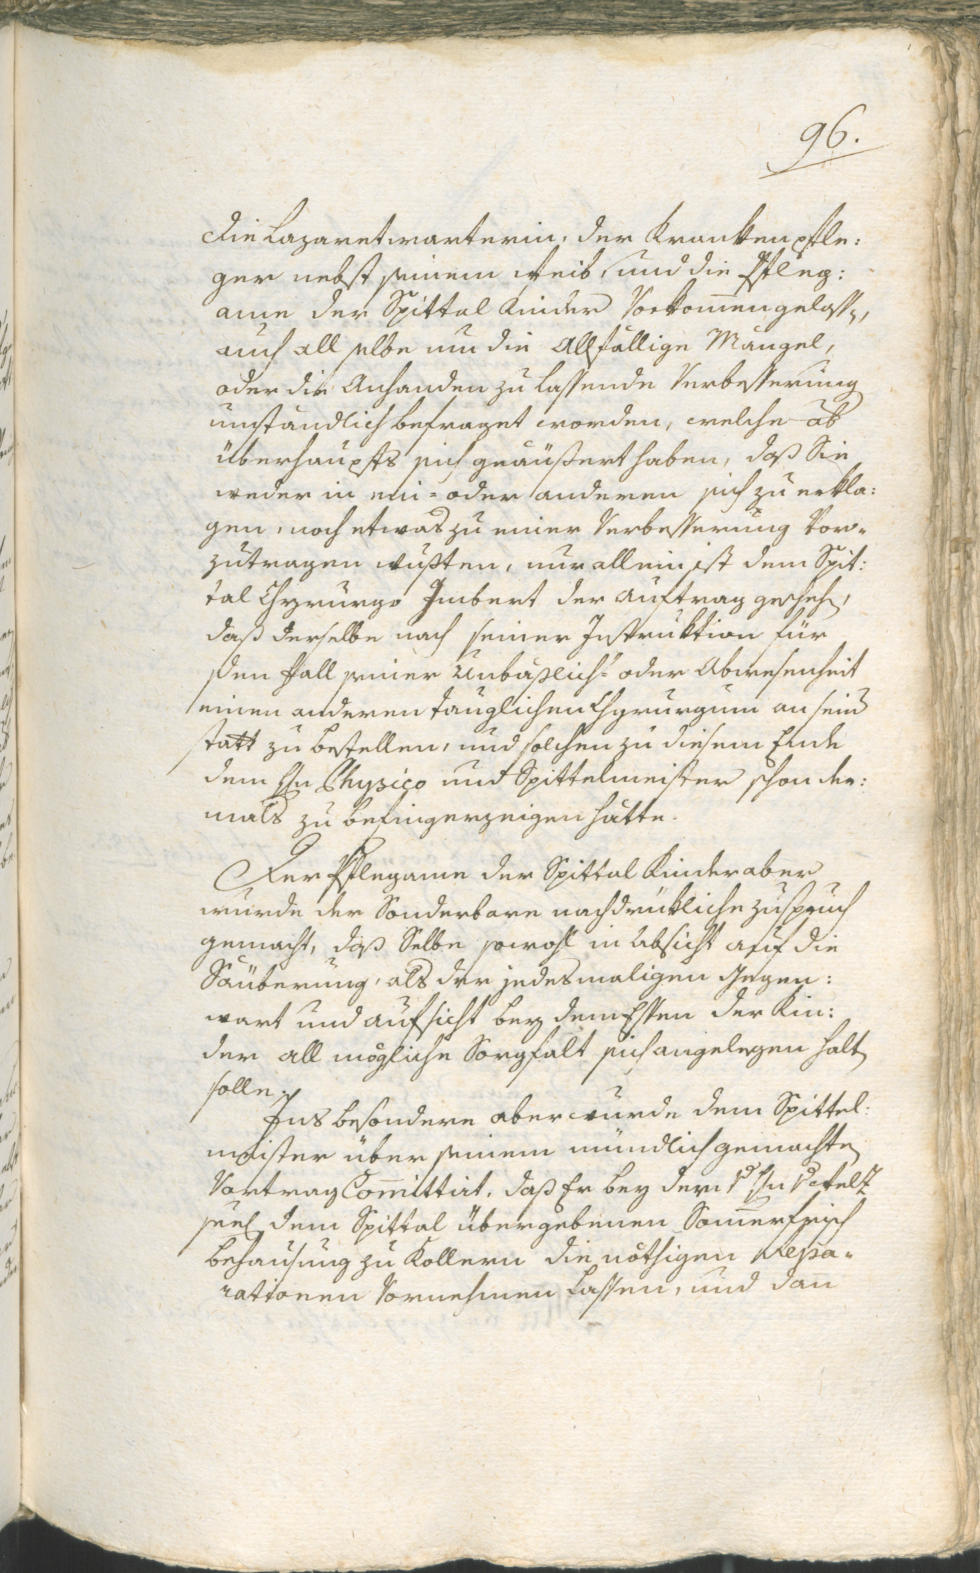 96.
die Lazaretwarterin, der Krankenpfle:
ger nebst seinem Weib, und die Pfleg:
ame der Spittal Kinder Vorkom̅en gelassen,
auch all selbe um die Allfällige Mängel,
oder die Anhanden zu lassende Verbesserung
umständlich befraget worden, welche ab
überhaupts sich geäußert haben, daß Sie
weder in ein- oder anderen sich zu erkla:
gen, noch etwas zu einer Verbesserung Vor-
zutragen wußten, nur allein ist dem Spit:
tal Chyrurgo Imbert der Auftrag geschehen,
daß derselbe nach seiner Instruktion für
den Fall seiner Unbäßlich- oder Abwesenheit
einen anderen tauglichen Chyrurgum an sein
statt zu bestellen, und solchen zu diesem Ende
dem Hn Physico und Spittelmeister schon der:
mals zu befingerzeigen hätte.
Der Pflegame der Spittal Kinder aber
wurde der Sonderbare nachdrükliche zuspruch
gemacht, daß Selbe sowohl in Absicht auf die
Säuberung, als der jedesmaligen Gegen:
wart und Aufsicht bey dem Essen der Kin:
der all mögliche Sorgfalt sich angelegen halten
solle.
Ins besondere aber wurde dem Spittel:
meister über seinem mündlich gemachten
Vortrag Com̅ittirt, daß Er bey dem Hn
seel. dem Spittal übergebenen Som̅erfrisch
behausung zu Kollern die nöthigen Repa-
rationen Vornehmen Lassen, und dan